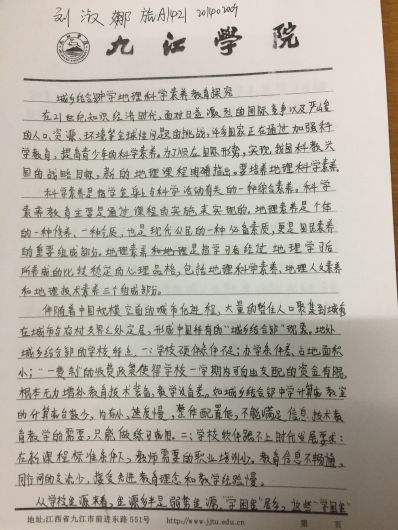 刘淑娜 旅A1421 20140 2009
九江学院
城乡结合部中学地理科学素养教育探究
在21世纪知识经济时代,面对日益激烈的国际竞争以及严峻
的人口、资源、环境等全球性问题的挑战,许多国家正在通过加强科
学教育,提高青少年的科学素养。为了顺应国际形势,实现我国科教兴
国的战略目标,新的地理课程明确指出:要培养地理科学素养。
科学素养是指学生参与科学活动有关的一种综合素养。科学
素养教育主要是通过课程的实施来实现的。地理素养是个体
的一种修养、一种气质,也是现代公民的一种必备素质,更是国民素养
的重要组成部分。地理素养是指学习者经过地理学习后
所养成的比较稳定的心理品格,包括地理科学素养、地理人文素养
和地理技术素养三个组成部分。
伴随着中国规模空前的城市化进程,大量的暂住人口聚集到城市
在城市与农村交界之处定居,形成中国特有的“城乡结合部”现象。地处
城乡结合部的学校特点,一:学校硬件条件不足:办学条件差、占地面积
小;“一费制”的收费政策使得学校一学期可自由支配的资金有限,
根本无力增补教育技术装备,教学设备差。如城乡结合部中学计算机教室
的计算机台数少,内存小,速度慢,整体配置低,不能满足信息技术教
育教学的需要,只能做练习使用。二:学校软件跟不上时代发展要求:
在新课程标准条件下,教师需要的职业培训少。教育信息不畅通,
同行间的交流少,接受先进教育理念和教学经验慢。
从学校生源来看,生源多半是弱势生源,“学困生”居多。这些“学困生”
地址:江西省九江市前进东路551号 http://www.jju.edu.cn 第 页